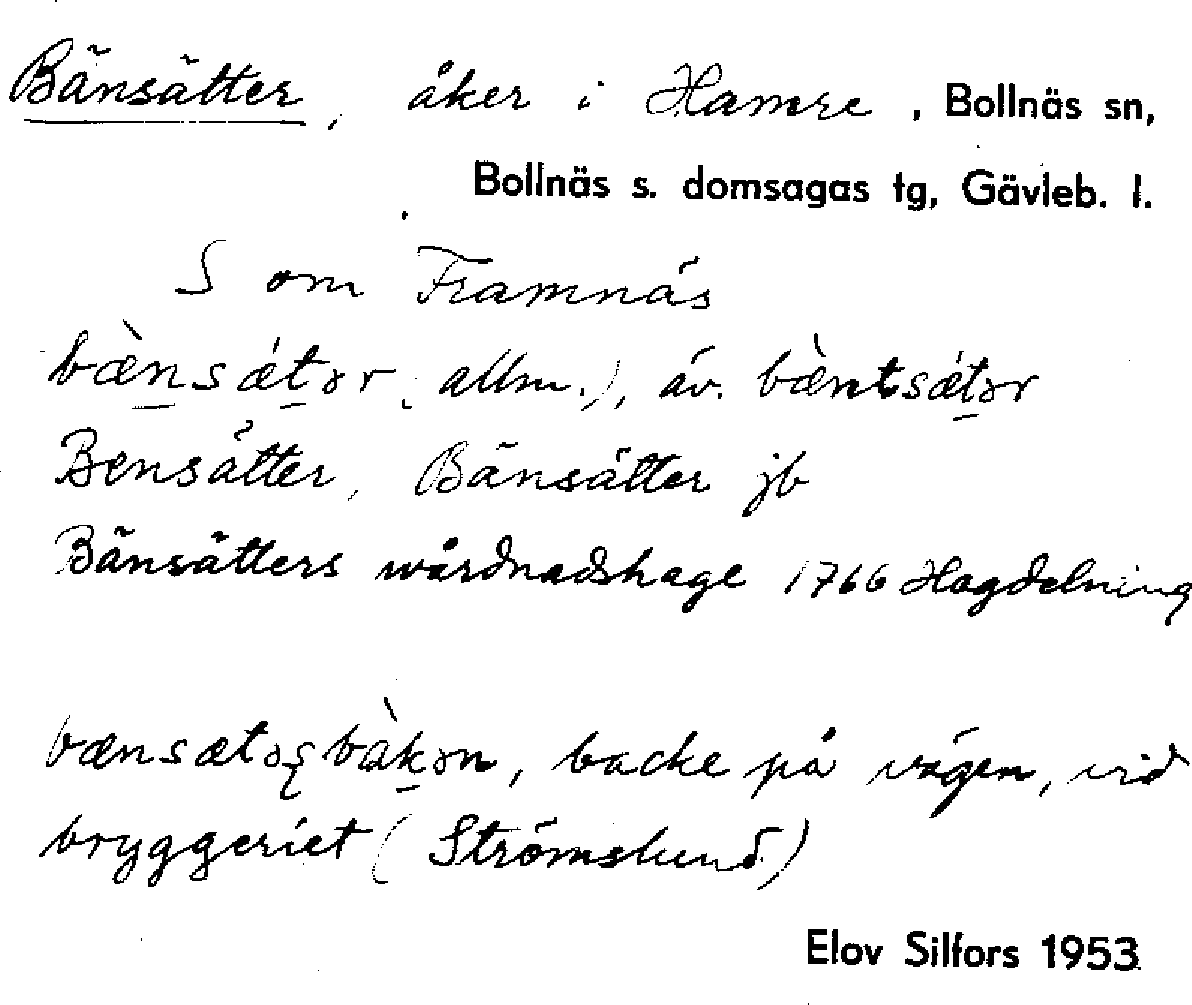 Bänsätter, åker i Hamre, Bollnäs sn,
Bollnäs s. domsagas tg, Gävleb. l.
S om Framnäs
bæ̀nsǽtər (allm.), äv. bæ̀ntsǽtər
Bensätter, Bänsätter jb
Bänsätters wårdnadshage 1766 Hagdelning
bænsætəʂbàkən, backe på vägen, vid
bryggeriet (Strömslund)
Elov Silfors 1953